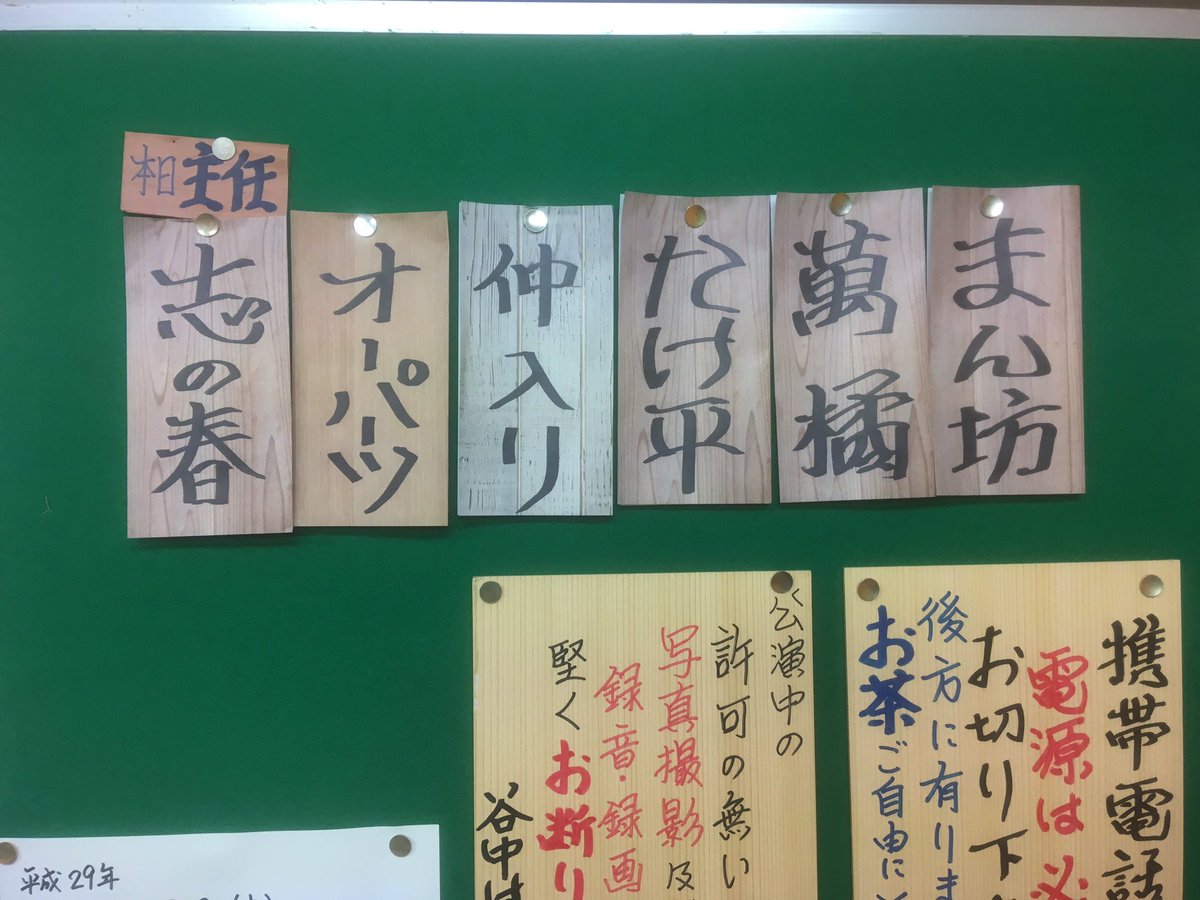 まん坊
萬橘
たけ平
仲入り
オーパーツ
本日主任
志の春
携帯電話
電源は必
お切り下
後方に有りま
お茶ご自由に
公演中の
許可の無い
写真撮影及
録音・録画
堅くお断り
谷中は
平成29年